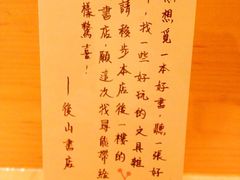 想覓一本好書，聽一張好
，找一些好玩的文具雜
請移步本店後一樓的
書店，願這次找尋能帶給
樣驚喜！
──後山書店